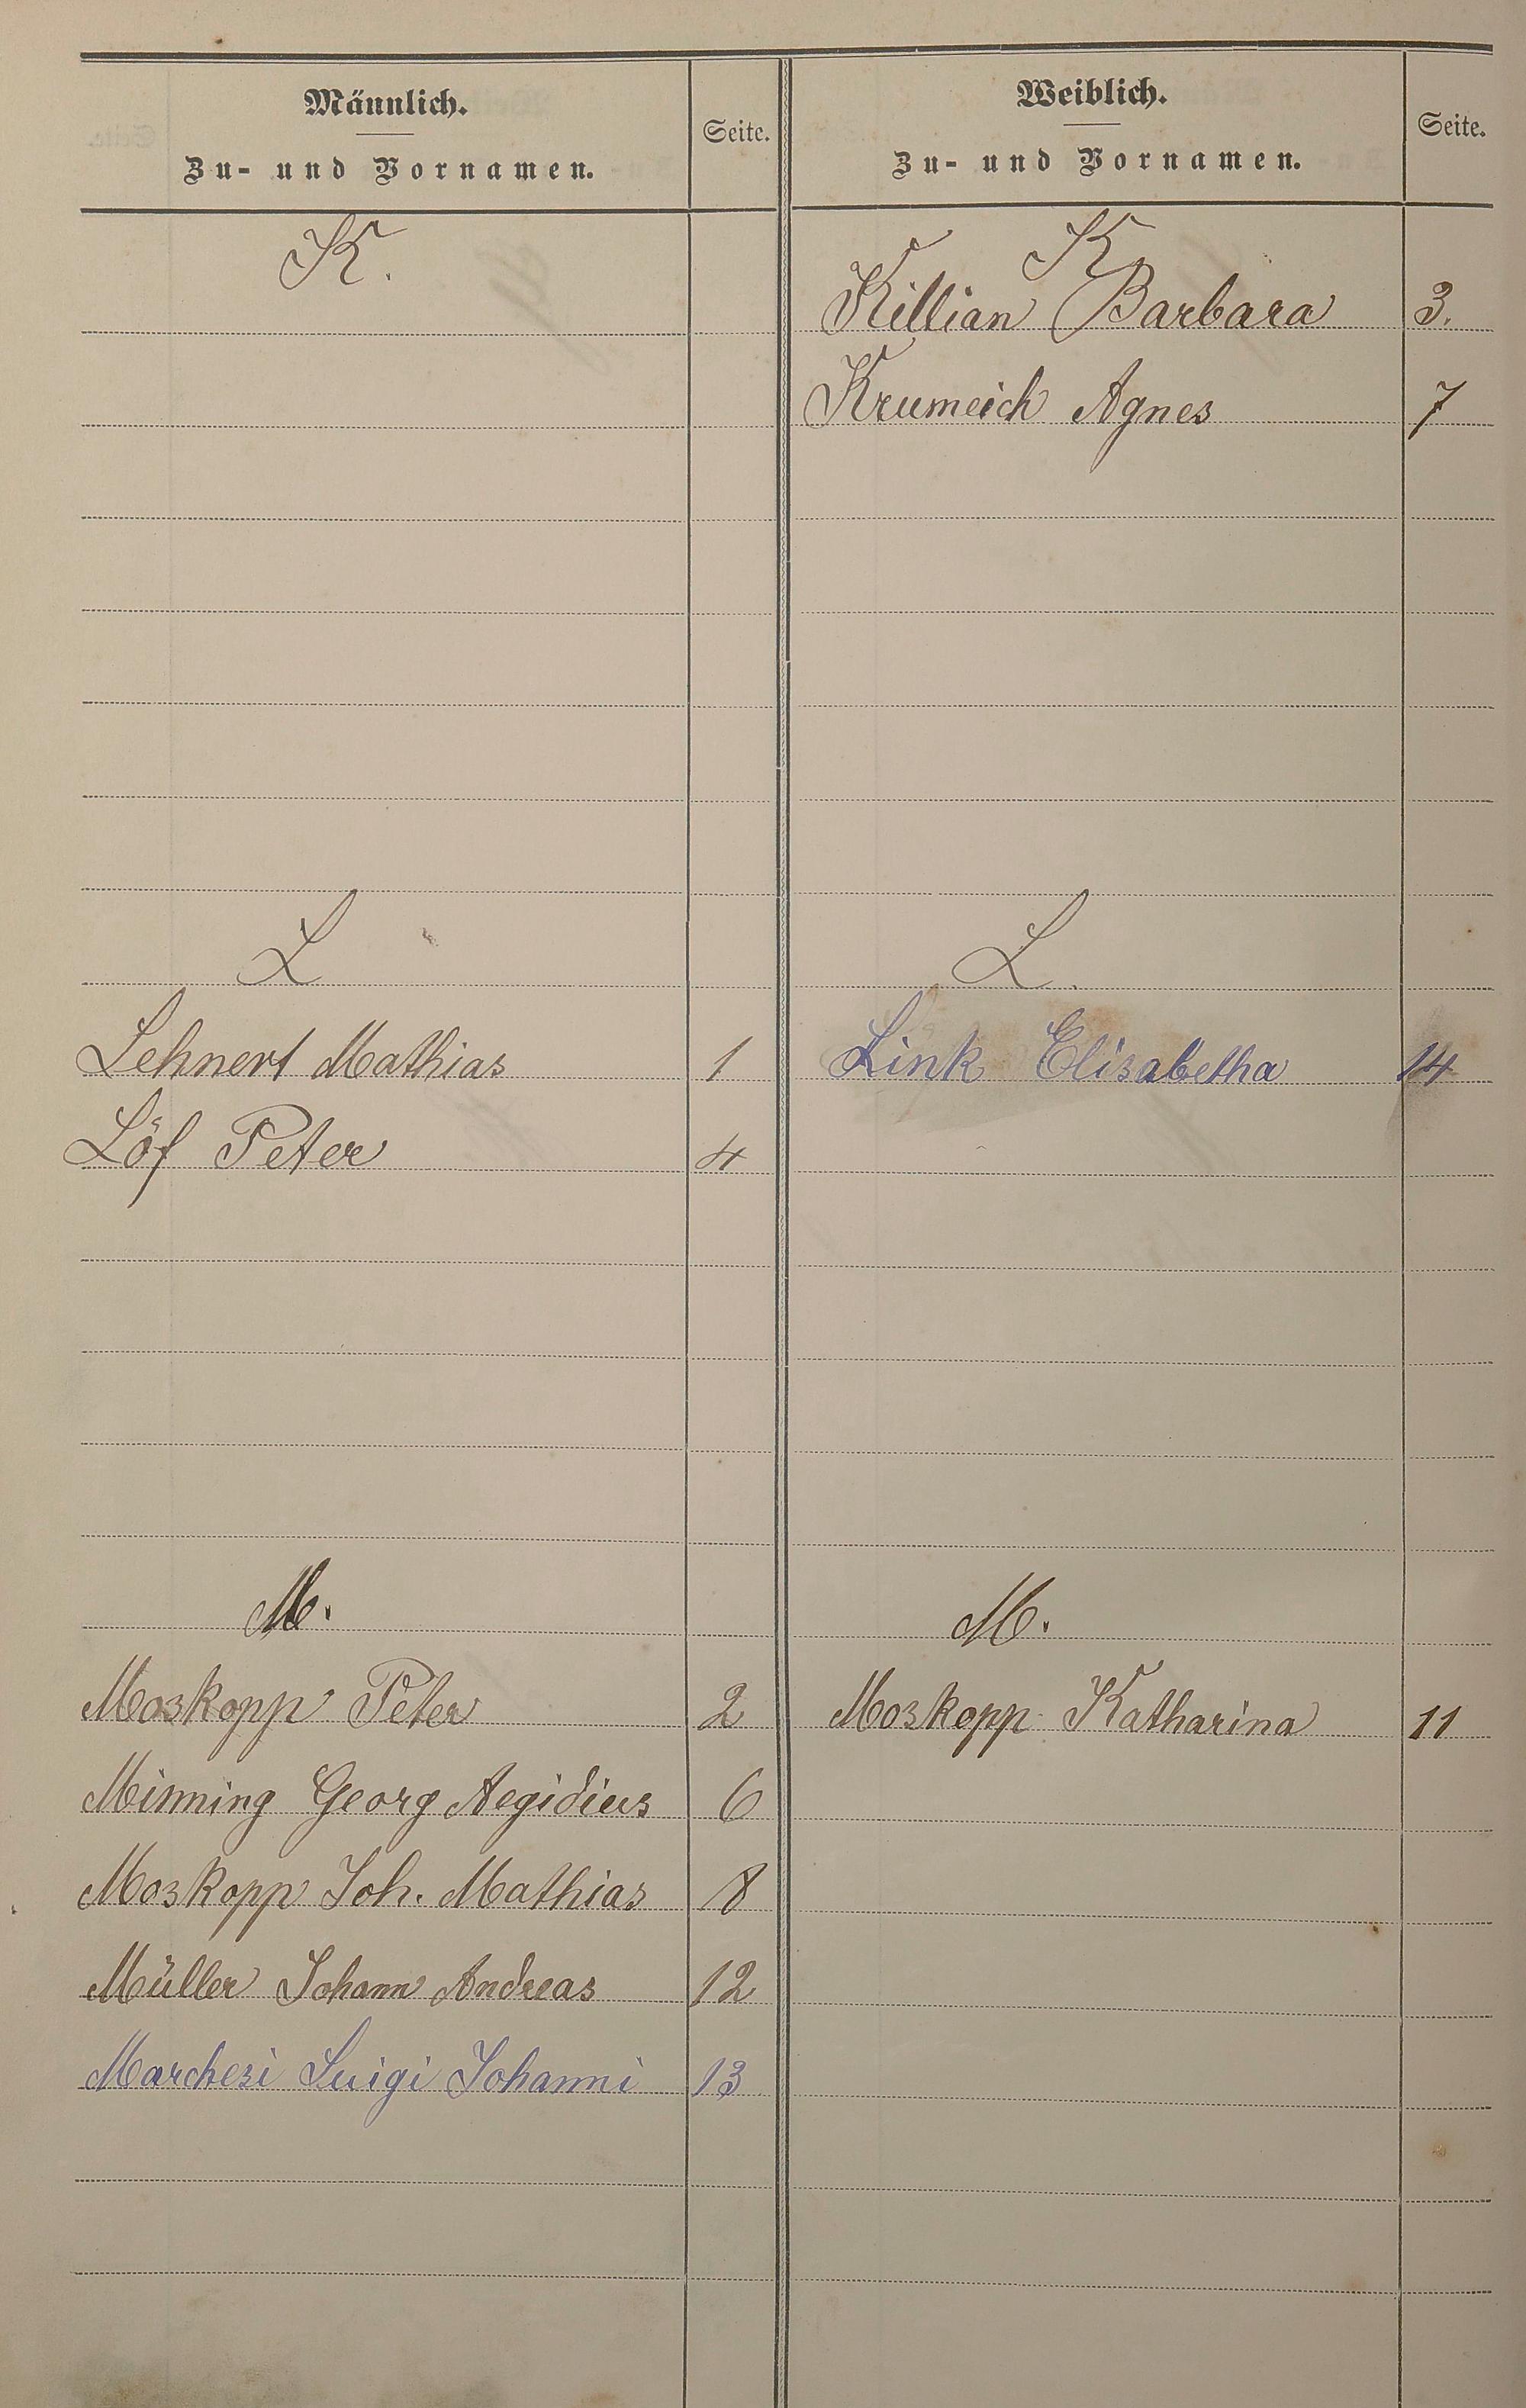 Männlich.
Zu- und Vornamen.
Seite.
Weiblich.
Zu- und Vornamen.
Seite.
K.
K.
Killian Barbara 3.
Krumeich Agnes 7
L
L.
Lehnert Mathias 1
Link Elisabetha 14
Löf Peter 4
M.
M.
Moskopp Peter 2
Moskopp Katharina 11
Minning Georg Aegidius 6
Moskopp Joh. Mathias 8
Müller Johann Andreas 12
Marchesi Luigi Johanni 13